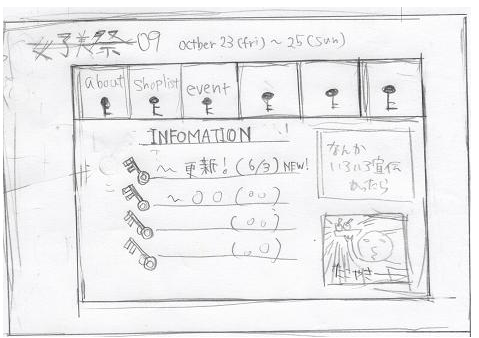 女子美祭 09 octber 23(fri) ~ 25(sun)
about shoplist event
INFOMATION !
~ 更新! (6/3) NEW!
~ ○○ (○○)
(○○)
(○○)
なんか
いろいろ宣伝
かったら
たこやきー